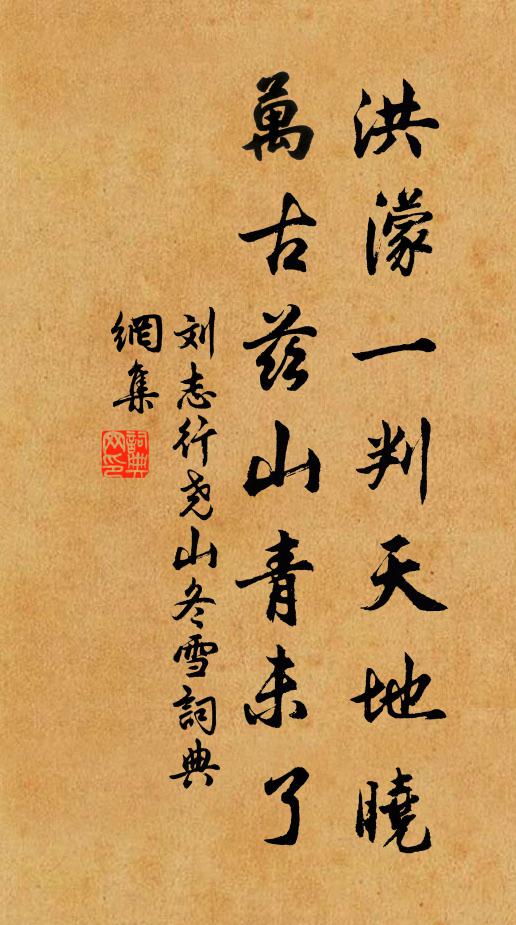 洪濛一判天地曉
萬古兹山青未了
刘志行尧山冬雪詞典
網集
詞典
网印